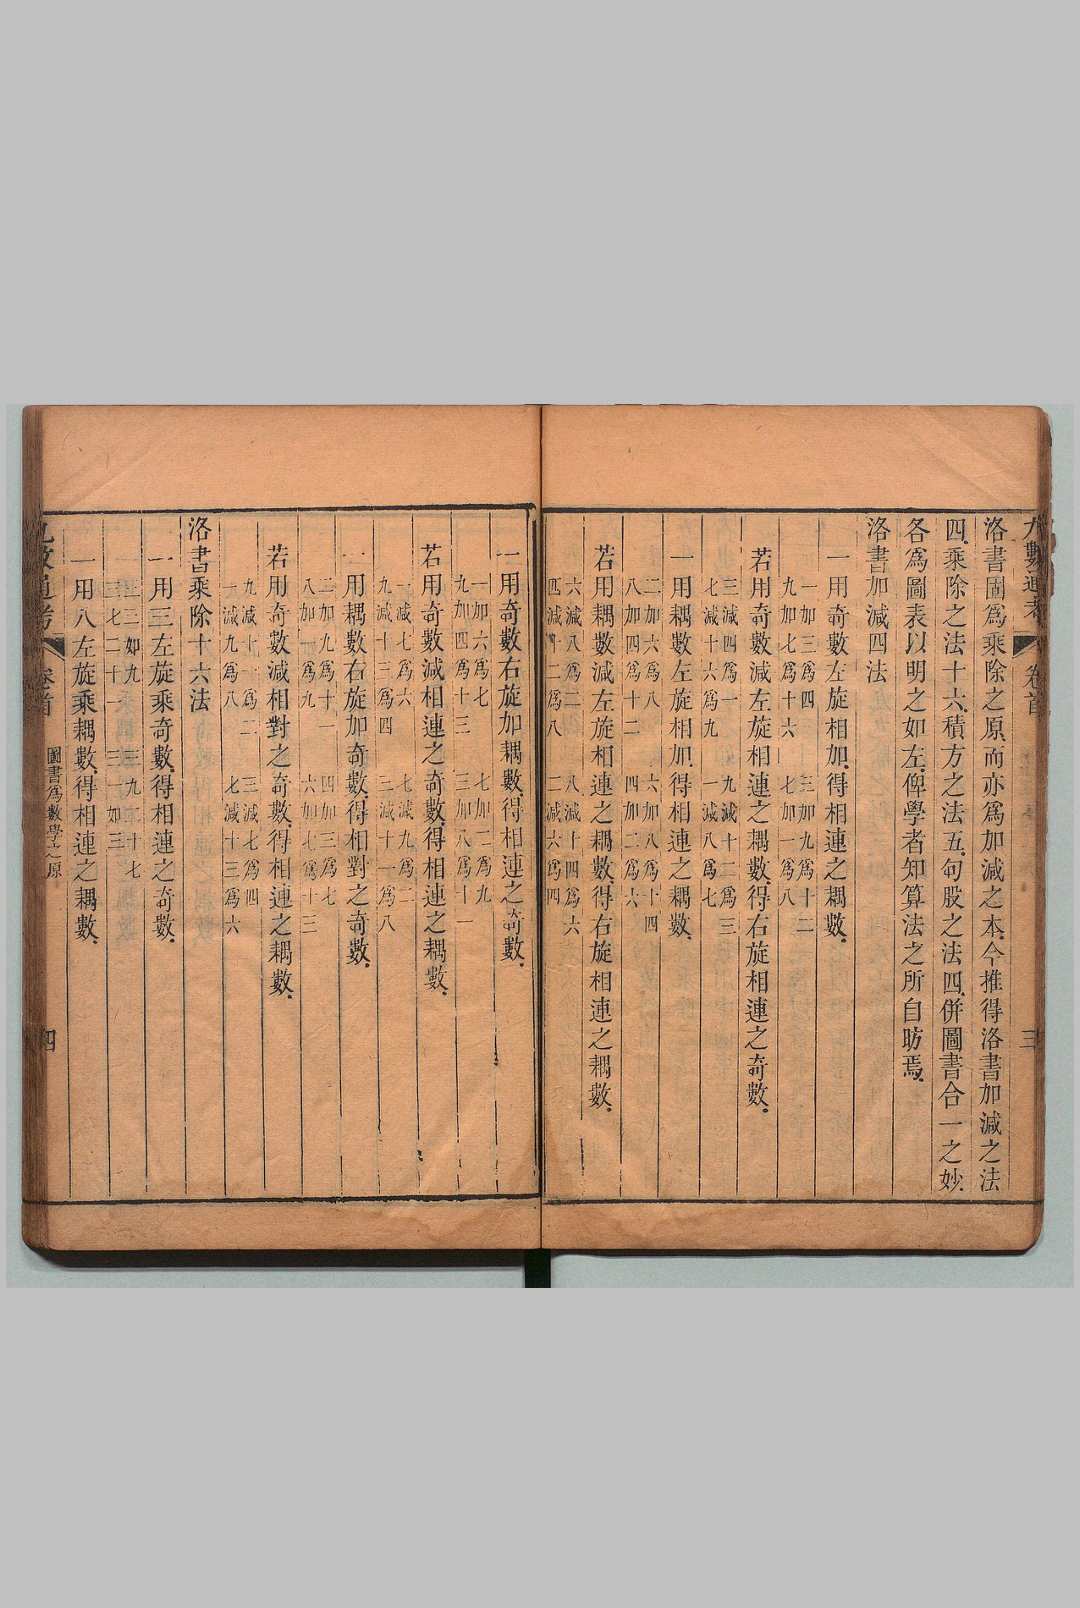 九數通考 卷首 三
洛書圖爲乘除之原而亦爲加減之本今推得洛書加減之法
四乘除之法十六積方之法五句股之法四併圖書合一之妙
各爲圖表以明之如左俾學者知算法之所自昉焉
洛書加減四法
一用奇數左旋相加得相連之耦數
一加三爲四 三加九爲十二
九加七爲十六 七加一爲八
若用奇數減左旋相連之耦數得右旋相連之奇數
三減四爲一 九減十二爲三
七減十六爲九 一減八爲七
一用耦數左旋相加得相連之耦數
二加六爲八 六加八爲十四
八加四爲十二 四加二爲六
若用耦數減左旋相連之耦數得右旋相連之耦數
六減八爲二 八減十四爲六
四減十二爲八 二減六爲四
一用奇數右旋加耦數得相連之奇數
一加六爲七 七加二爲九
九加四爲十三 三加八爲十一
若用奇數減相連之奇數得相連之耦數
一減七爲六 七減九爲二
九減十三爲四 三減十一爲八
一用耦數右旋加奇數得相對之奇數
二加九爲十一 四加三爲七
八加一爲九 六加七爲十三
若用奇數減相對之奇數得相連之耦數
九減十一爲二 三減七爲四
一減九爲八 七減十三爲六
洛書乘除十六法
一用三左旋乘奇數得相連之奇數
三三如九 三九二十七
三七二十一 三一如三
一用八左旋乘耦數得相連之耦數
九數通考 卷首 圖書爲數學之原 四